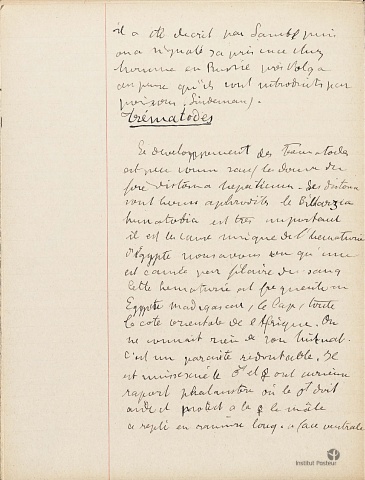 il a été decrit par Sambl puis
on a signalé sa présence chez
homme en Russie près Volga
on pense qu'ils sont introduits par
poissons. Lindeman).
Trématodes
Le developpement des Trematodes
est peu connu sauf le douve du
foie distoma hepaticum. Les distoma
sont hermaphrodites le Bilharzia
hematobia est très important
il est la cause unique de l'hematurie
d'Egypte nous avons vu qu'une
est causée par filaire du sang
Cette hematurie est frequente en
Egypte Madagascar, le Cap, toute
la cote orientale de l'Afrique. On
ne connait rien de son habitat.
C'est un parasite redoutable. Il
est unisexué le ♂ et ♀ ont curieux
rapport où le ♂ doit
aide et protect a la ♀ le mâle
se replie en long. face ventrale
Institut Pasteur